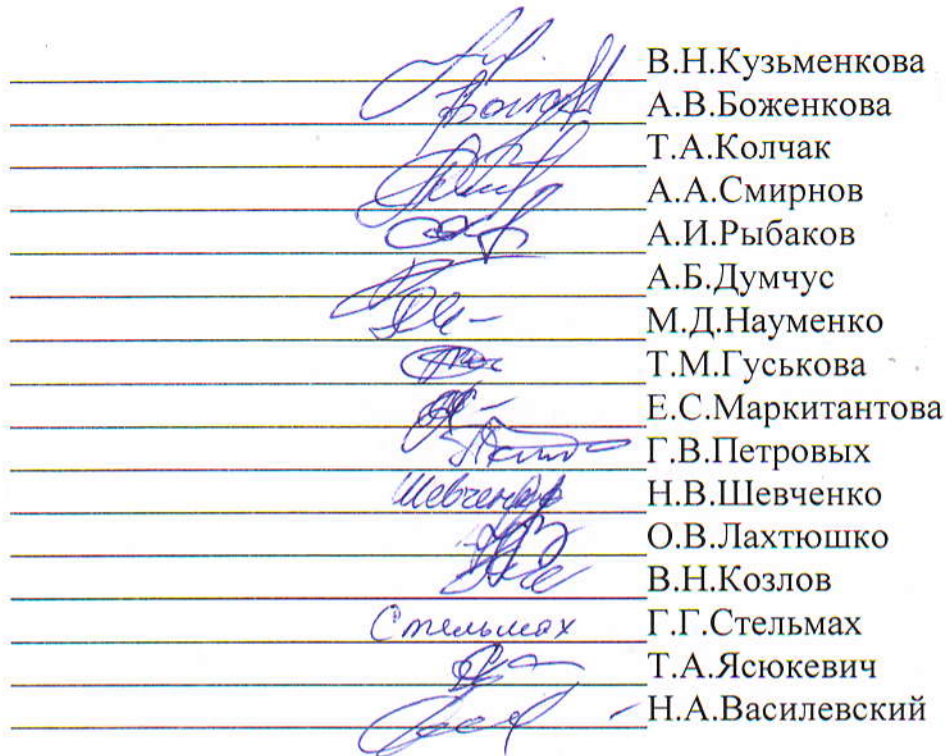 В.Н.Кузьменкова
А.В.Боженкова
Т.А.Колчак
А.А.Смирнов
А.И.Рыбаков
А.Б.Думчус
М.Д.Науменко
Т.М.Гуськова
Е.С.Маркитантова
Г.В.Петровых
Шевченко Н.В.Шевченко
О.В.Лахтюшко
В.Н.Козлов
Стельмах Г.Г.Стельмах
Т.А.Ясюкевич
Н.А.Василевский